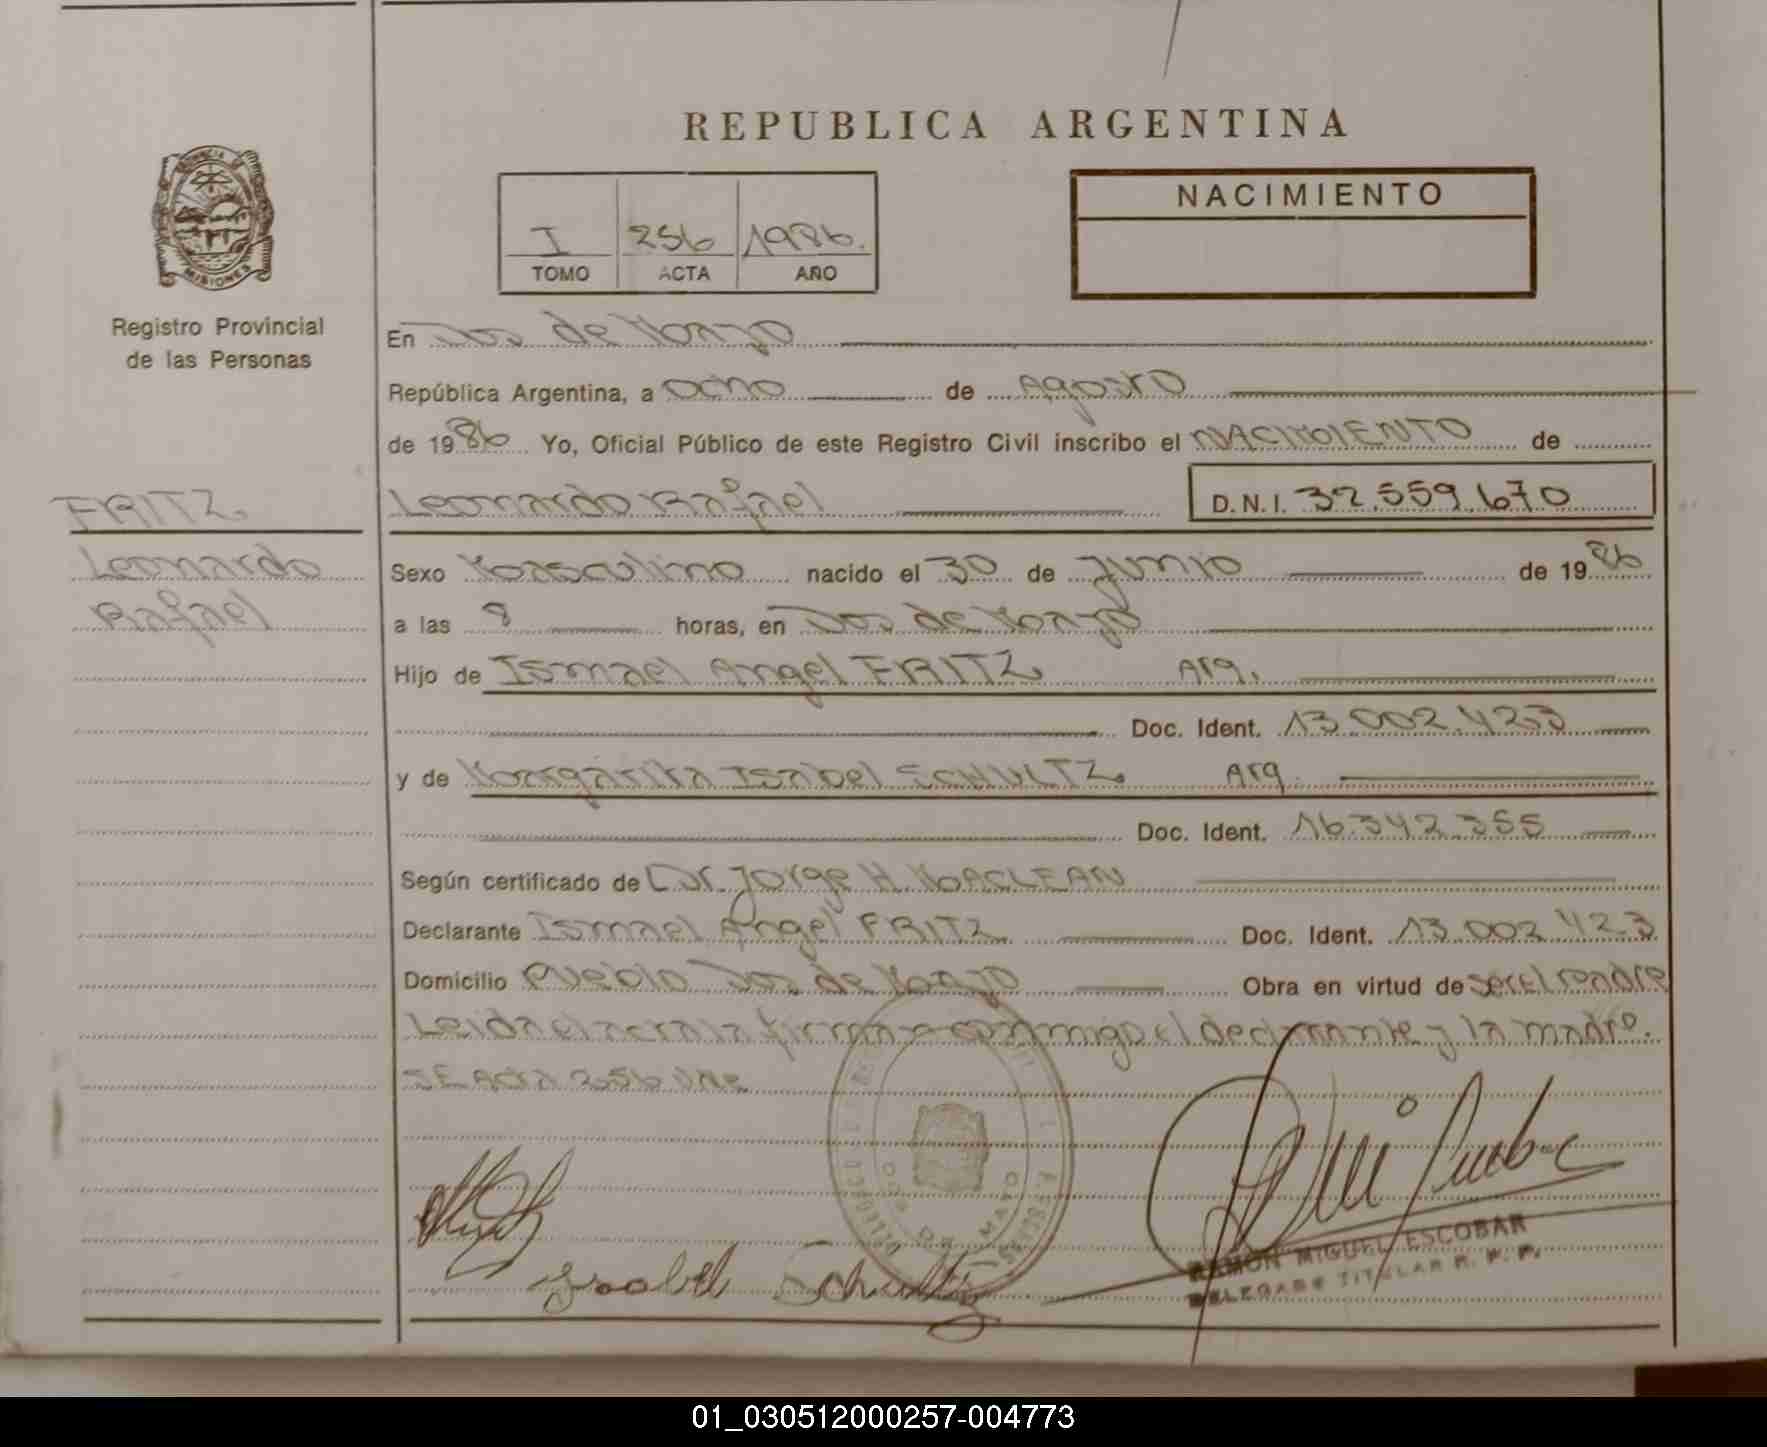 REPUBLICA ARGENTINA
PROVINCIA DE
MISIONES
Registro Provincial
de las Personas
I 256 1986.
TOMO ACTA AÑO
NACIMIENTO
En Dos de Mayo
República Argentina, a ocho de Agosto
de 1986 Yo, Oficial Público de este Registro Civil inscribo el NACIMIENTO de
FRITZ
Leonardo
Rafael
Leonardo Rafael D.N.I. 32.559.670
Sexo Masculino nacido el 30 de Junio de 1986
a las 8 horas, en Dos de Mayo
Hijo de Ismael Angel FRITZ Arg.
Doc. Ident. 13.002.423
y de Margarita Isabel SCHULTZ. Arg.
Doc. Ident. 16.342.355
Según certificado de Dr. Jorge H. MACLEAN
Declarante Ismael Angel FRITZ Doc. Ident. 13.002.423
Domicilio Pueblo Dos de Mayo Obra en virtud de ser el padre
Leida el acta la firman conmigo el declarante y la madre.
Acta 256
Isabel Schultz
RAMON MIGUEL ESCOBAR
DELEGADO TITULAR R. P. P.
01_030512000257-004773